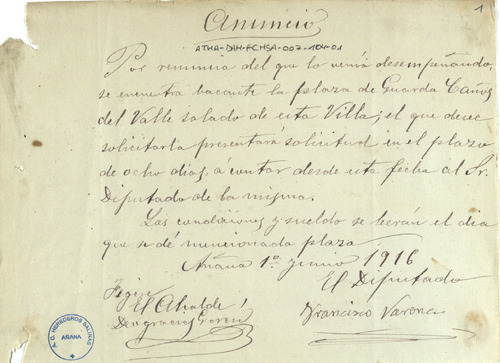 1
Anuncio
ATHA-DAH-FCHSA-007-104-01
Por renuncia del que lo venia desempeñando,
se encuentra bacante la plaza de Guarda Caños
del Valle salado de esta Villa; el que decee
solicitarla presentará solicitud en el plazo
de ocho dias, á contar desde esta fecha al Sr.
Diputado de la misma.
Las condiciones y sueldo se leerán el dia
que se dé mencionada plaza
Añana 1º junio 1916
El Diputado
Fijese
El Alcalde
Francisco Varona
Deogracias
A.C. HEREDEROS SALINAS
AÑANA